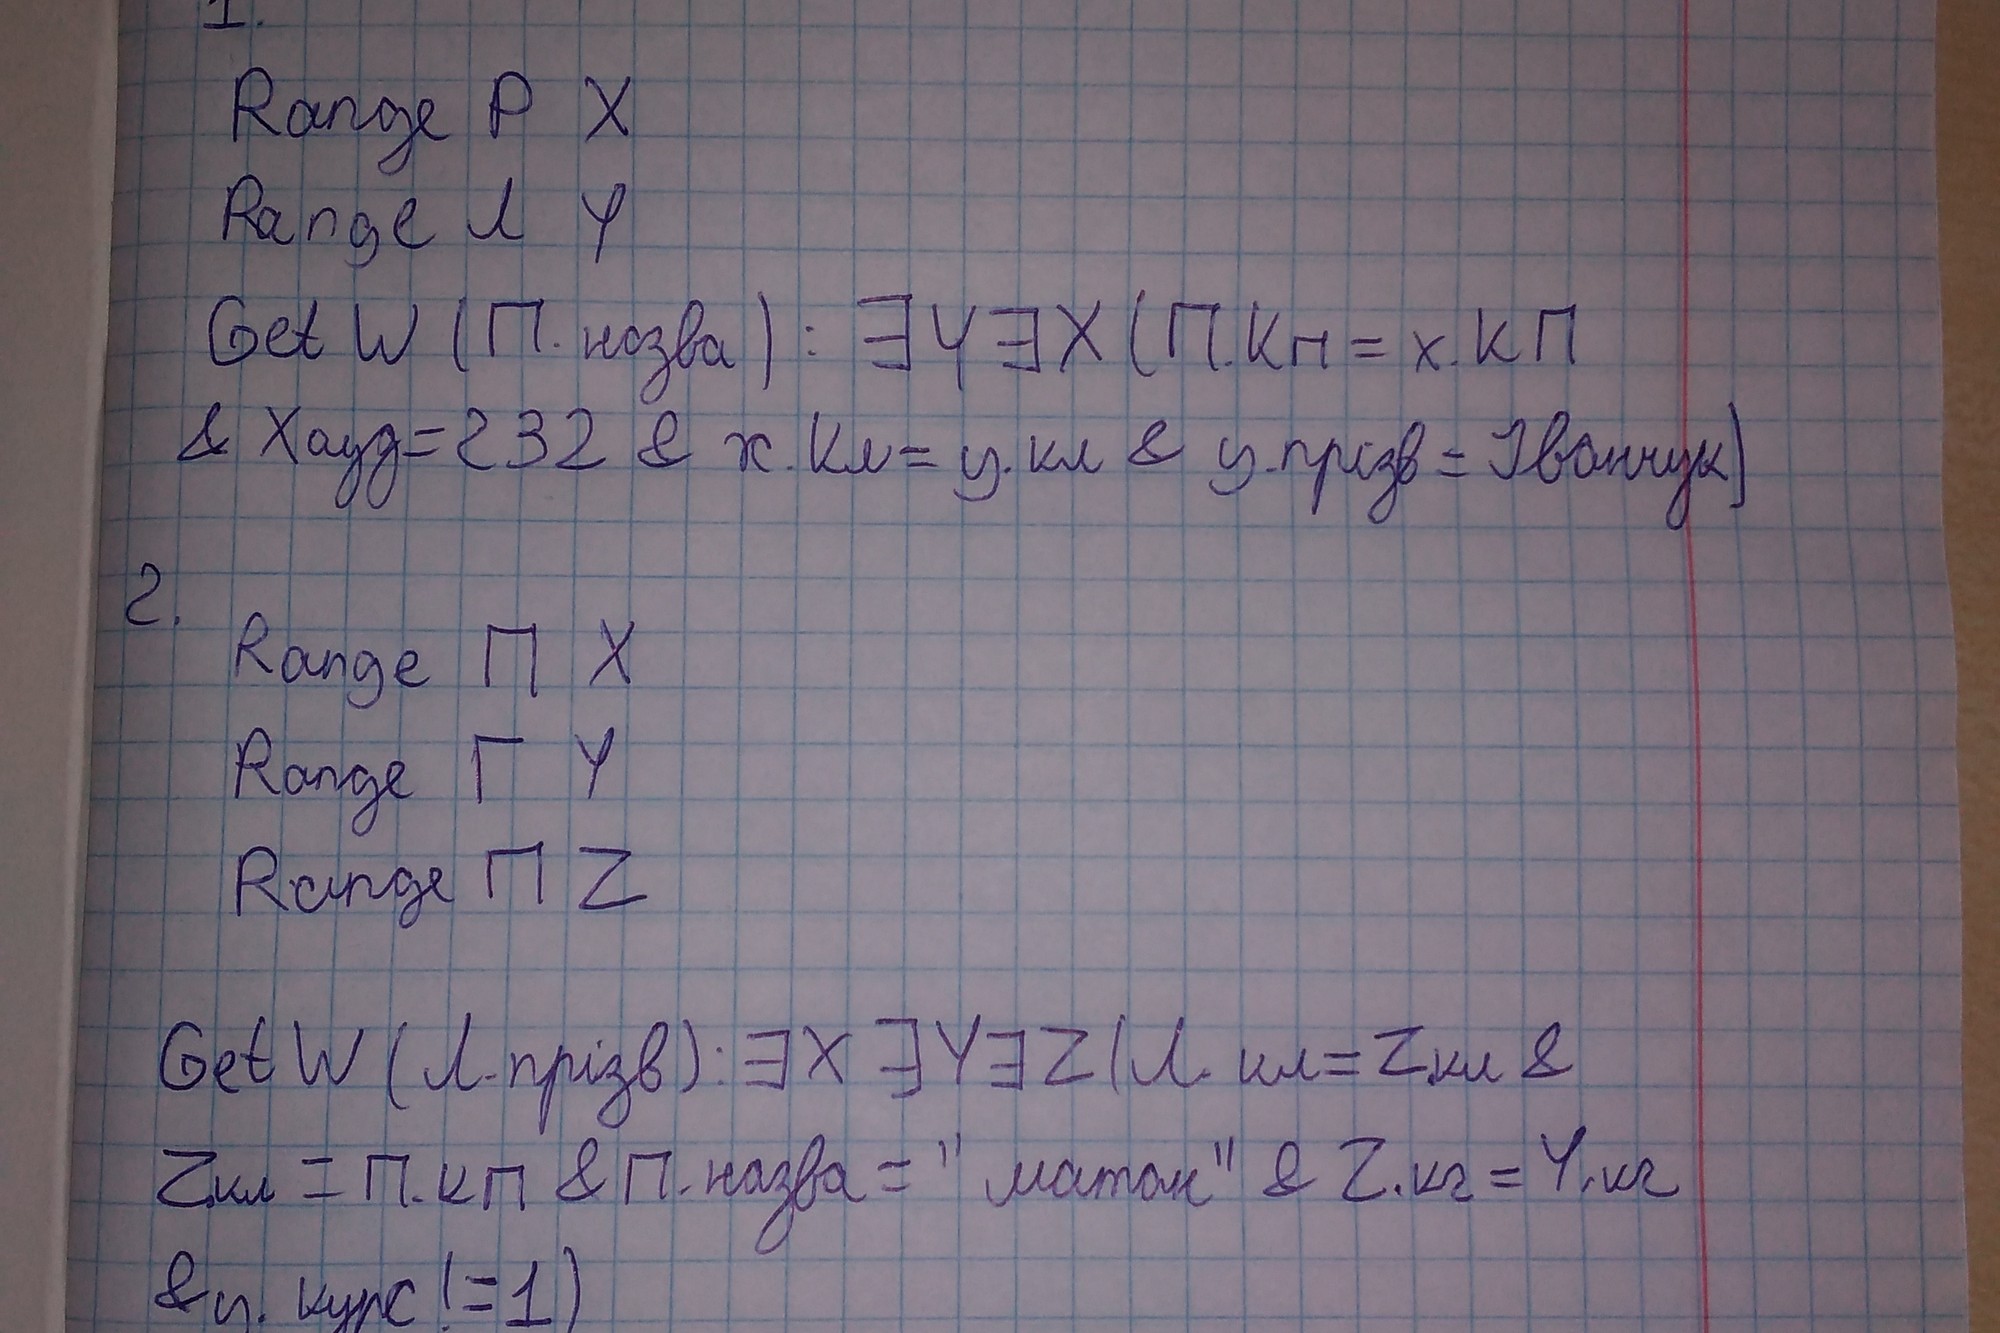 1.
Range Р X
Range Л Y
Get W (П.назва): ∃Y∃X(П.Кн = х.КП
& Xауд=232 & х.Кл=у.кл & у.прізв=Іванчук)
2.
Range П X
Range Г Y
Range П Z
Get W (Л.прізв): ∃X ∃Y∃Z(Л.кл=Z.кл &
Z.кл = П.кП & П.назва = "матан" & Z.кг = Y.кг
& у. курс != 1)